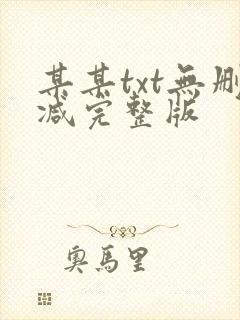 某某txt無刪
减完整版
奧馬里